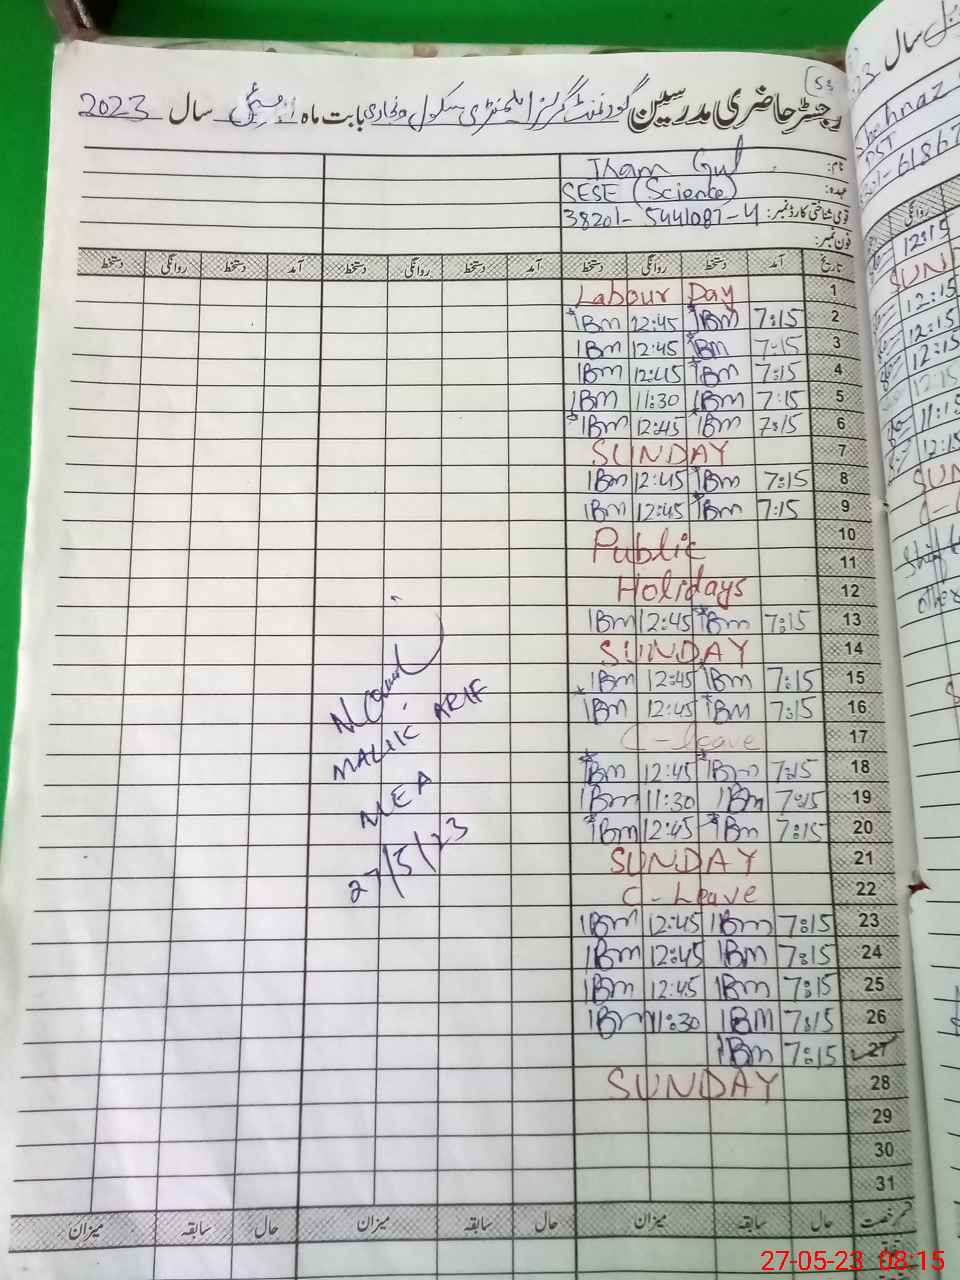 53
رجسٹر حاضری مدرسین گورنمنٹ گرلز ایلیمنٹری سکول بابت ماہ مئی سال 2023
نام: Iram Gul
عہدہ: SESE (Science)
قومی شناختی کارڈ نمبر: 38201-5441087-4
فون نمبر:
تاریخ آمد دستخط روانگی دستخط آمد دستخط روانگی دستخط آمد دستخط روانگی دستخط
1 Labour Day
2 7:15 IBm 12:45 IBm
3 7:15 IBm 12:45 IBm
4 7:15 IBm 12:45 IBm
5 7:15 IBm 11:30 IBm
6 7:15 IBm 12:45 IBm
7 SUNDAY
8 7:15 IBm 12:45 IBm
9 7:15 IBm 12:45 IBm
10 Public
11
12 Holidays
13 7:15 IBm 12:45 IBm
14 SUNDAY
15 7:15 IBm 12:45 IBm
16 7:15 IBm 12:45 IBm
17 C-leave
18 7:15 IBm 12:45 IBm
19 7:15 IBm 11:30 IBm
20 7:15 IBm 12:45 IBm
21 SUNDAY
22 C-Leave
23 7:15 IBm 12:45 IBm
24 7:15 IBm 12:45 IBm
25 7:15 IBm 12:45 IBm
26 7:15 IBM 11:30 IBm
27 7:15 IBm
28 SUNDAY
29
30
31
MALIK ARIF
MEA
27/5/23
قسم رخصت حال سابقہ میزان حال سابقہ میزان حال سابقہ میزان
Shehnaz
PST
61867
روانگی
12:15
SUN
12:15
12:15
12:15
12:15
11:15
12:15
SUN
27-05-23 08:15